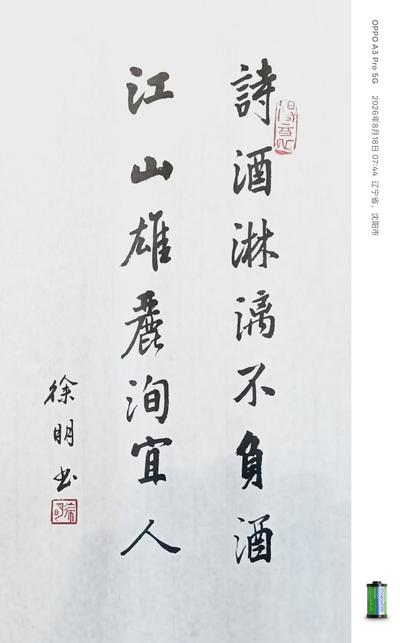 詩酒淋漓不負酒
江山雄麗洵宜人
徐明书
OPPO A3 Pro 5G 2026年8月18日 07:44 辽宁省，沈阳市